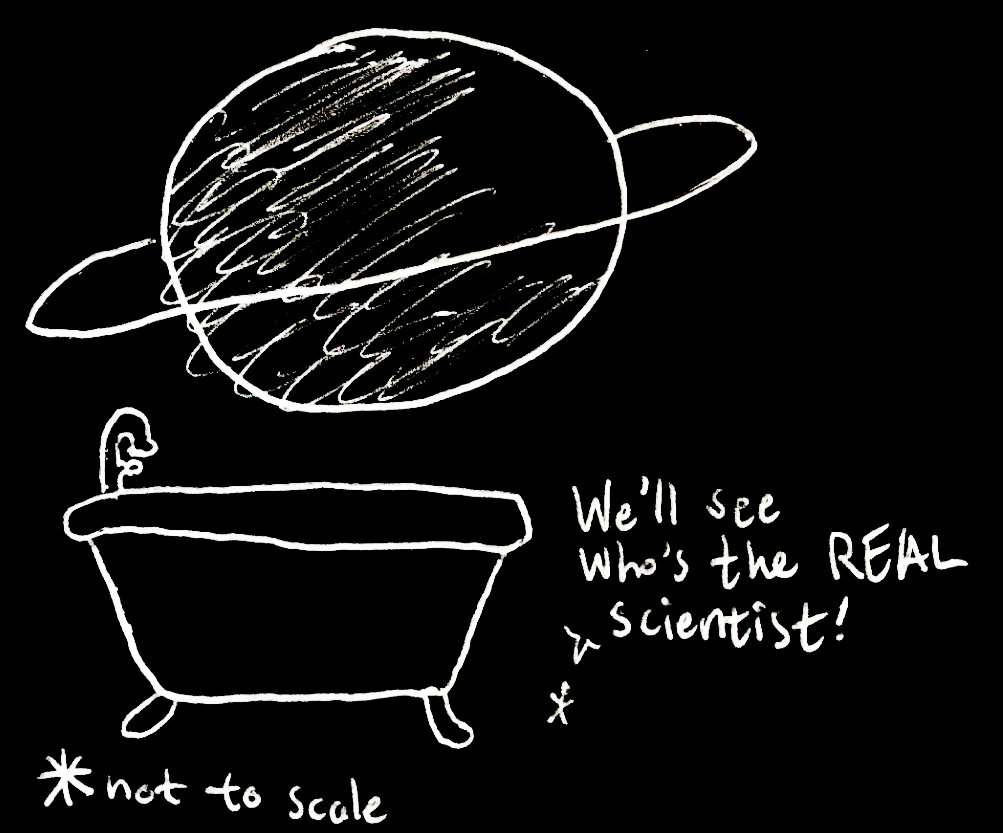 We'll see
who's the REAL
scientist!
*not to scale